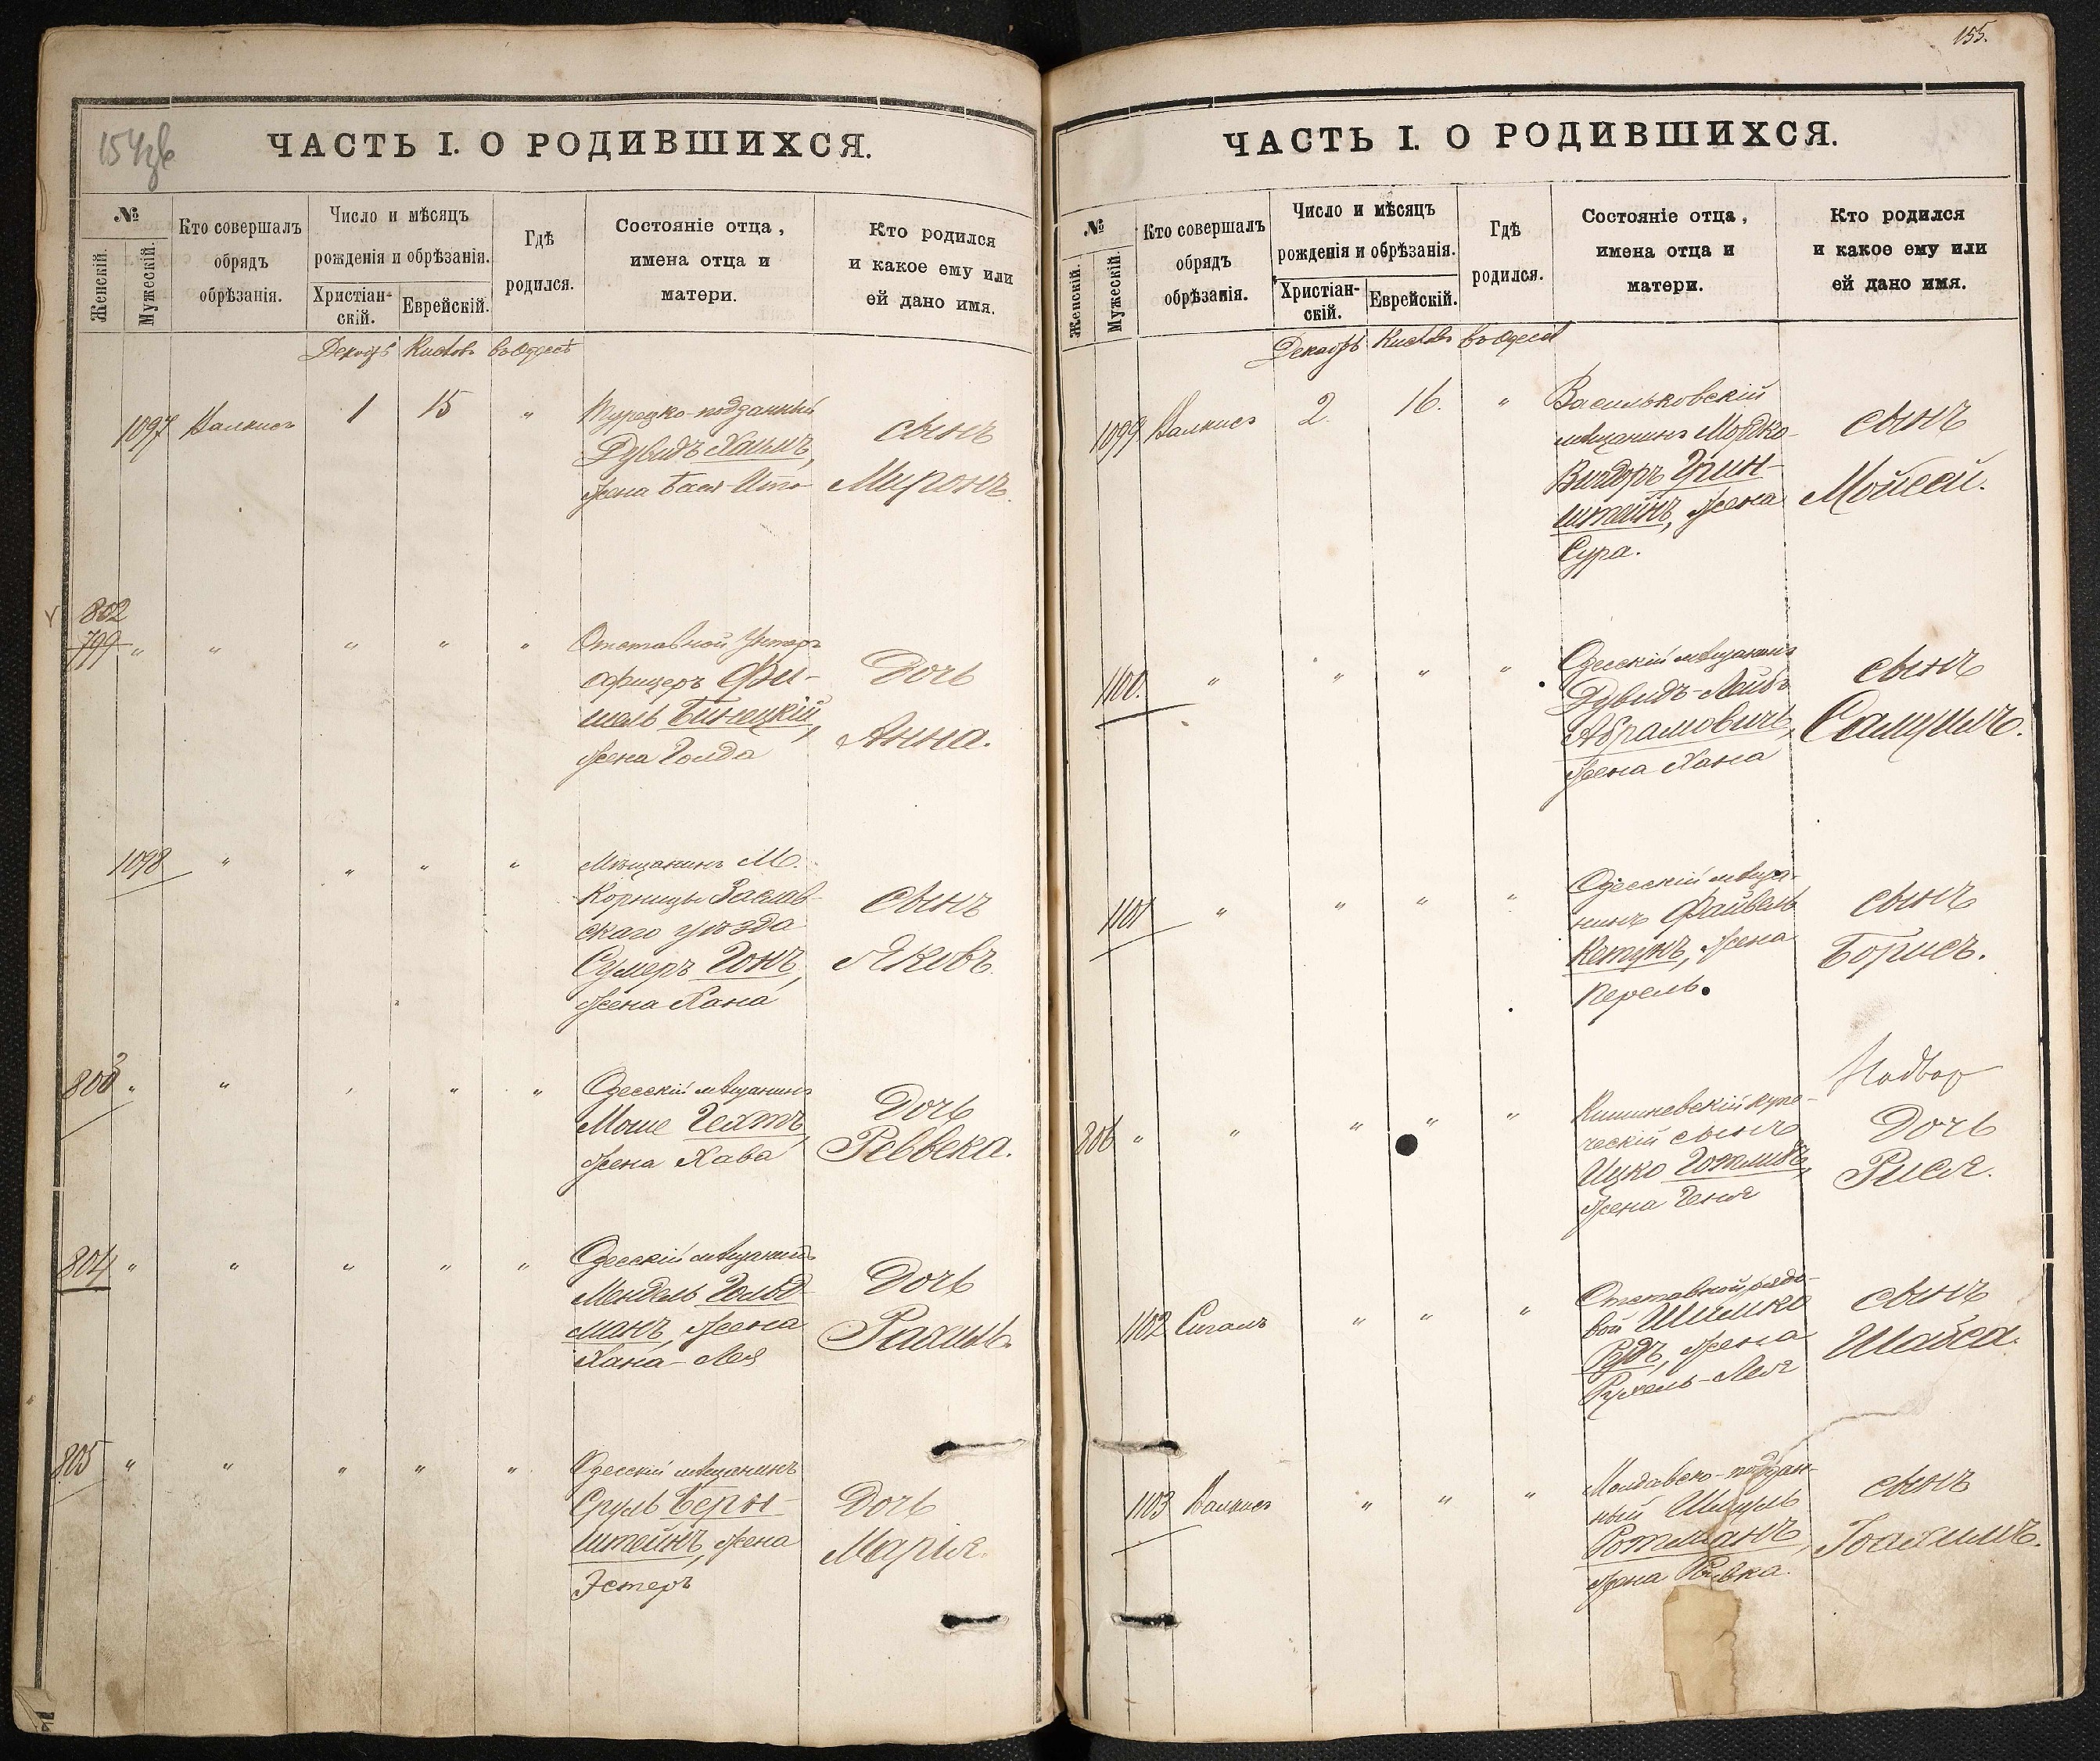 154 зв
ЧАСТЬ I. О РОДИВШИХСЯ.
№
Женскій.
Мужескій.
Кто совершалъ
обрядъ
обрѣзанія.
Число и мѣсяцъ
рожденія и обрѣзанія.
Христіан-
скій.
Еврейскій.
Гдѣ
родился.
Состояніе отца,
имена отца и
матери.
Кто родился
и какое ему или
ей дано имя.
Декабрь Кислев въ Одессѣ
1097 1 15 „
Турецко-подданный
Дувидъ Хаимъ,
жена Бася-Ита
сынъ
Миронъ.
802
799 „ „ „ „ „
Отставной Унтеръ
офицеръ Фи-
шель Бинецкій,
жена Голда
Дочь
Анна.
1098 „ „ „ „
Мѣщанинъ М.
Корницы Заслав-
скаго уѣзда
Сумеръ Гонъ,
жена Хана
сынъ
Яковъ
803 „ „ „ „ „
Одесскій мѣщанинъ
Моше Гехтъ,
жена Хава
Дочь
Реввека.
804 „ „ „ „ „
Одесскій мѣщанинъ
Мендель Гольд-
манъ, жена
Хана-Лея
Дочь
Рахиль.
805 „ „ „ „ „
Одесскій мѣщанинъ
Сруль Берн-
штейнъ, жена
Эстеръ
Дочь
Марія.
155.
ЧАСТЬ I. О РОДИВШИХСЯ.
№
Женскій.
Мужескій.
Кто совершалъ
обрядъ
обрѣзанія.
Число и мѣсяцъ
рожденія и обрѣзанія.
Христіан-
скій.
Еврейскій.
Гдѣ
родился.
Состояніе отца,
имена отца и
матери.
Кто родился
и какое ему или
ей дано имя.
Декабрь Кислевъ въ Одессѣ
1099 2. 16. „
Васильковскій
мѣщанинъ Мордко-
Вигдоръ Грин-
штейнъ, жена
Сура.
сынъ
Мойсей.
1100. „ „ „ „
Одесскій мѣщанинъ
Дувидъ-Лейбъ
Абрамовичъ,
жена Хана
сынъ
Самуилъ.
1101 „ „ „ „
Одесскій мѣща-
нинъ Файвель
Кетунъ, жена
Перель.
сынъ
Борисъ.
806 „ „ „ „ „
Кишиневскій купе-
ческій сынъ
Ицко Готлибъ,
жена Геня
Дочь
Рися.
1102 Сигалъ „ „ „
Отставной рядо-
вой Шлемко
Рудъ, жена
Рухель-Лея
сынъ
Шайса.
1103 „ „ „
Молдавско-поддан-
ный Шмуль
Ротманъ,
жена Ривка.
сынъ
Іоахимъ.